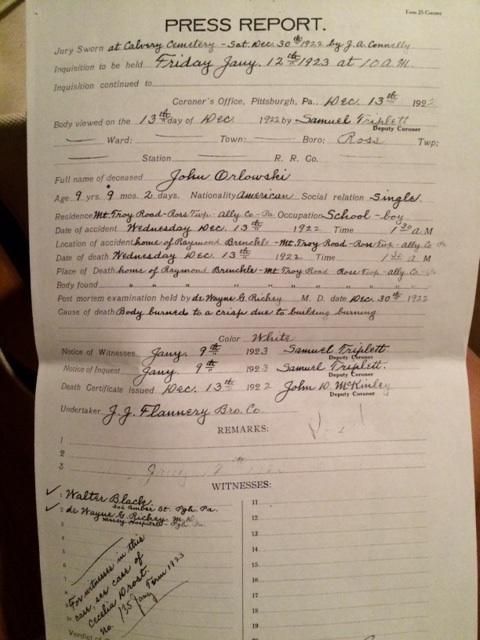 Form 25 Coroner
PRESS REPORT.
Jury Sworn at Calvery Cemetery - Sat. Dec. 30th 1922 by J.A. Connelly
Inquisition to be held Friday Jany. 12th 1923 at 10 A.M.
Inquisition continued to
Coroner's Office, Pittsburgh, Pa., Dec. 13th 1922
Body viewed on the 13th day of Dec. 1922 by Samuel Triplett
Deputy Coroner
Ward: Town: Boro: Ross Twp:
Station R. R. Co.
Full name of deceased John Orlowski
Age 9 yrs. 9 mos. 2 days. Nationality American Social relation Single.
Residence Mt. Troy Road - Ross Twp - ally Co - Pa. Occupation School - boy
Date of accident Wednesday Dec. 13th 1922 Time A.M
Location of accident home of Raymond Brenckle - Mt. Troy Road - Ross Twp - ally Co
Date of death Wednesday Dec. 13th 1922 Time A.M
Place of Death home of Raymond Brenckle - Mt. Troy Road Ross Twp - ally Co.
Body found " " " " " " " " "
Post mortem examination held by de Wayne G. Richey M. D. date Dec. 30th 1922
Cause of death Body burned to a crisp due to building burning
Color White
Notice of Witnesses Jany. 9th 1923 Samuel Triplett
Deputy Coroner
Notice of Inquest Jany. 9th 1923 Samuel Triplett.
Deputy Coroner
Death Certificate Issued Dec. 13th 1922 John D. McKinley
Deputy Coroner
Undertaker J.J. Flannery Bro. Co.
REMARKS:
1
2
3
WITNESSES:
1 Walter Black
Amber St. Pgh. Pa.
2 de Wayne G. Richey M.D.
Mercy Hospital - Pgh. Pa.
For witnesses in this
case, see case of
Cecelia Drost.
No. 135 Jany Term 1923
11
12
13
14
15
16
17
18
19
Verdict of